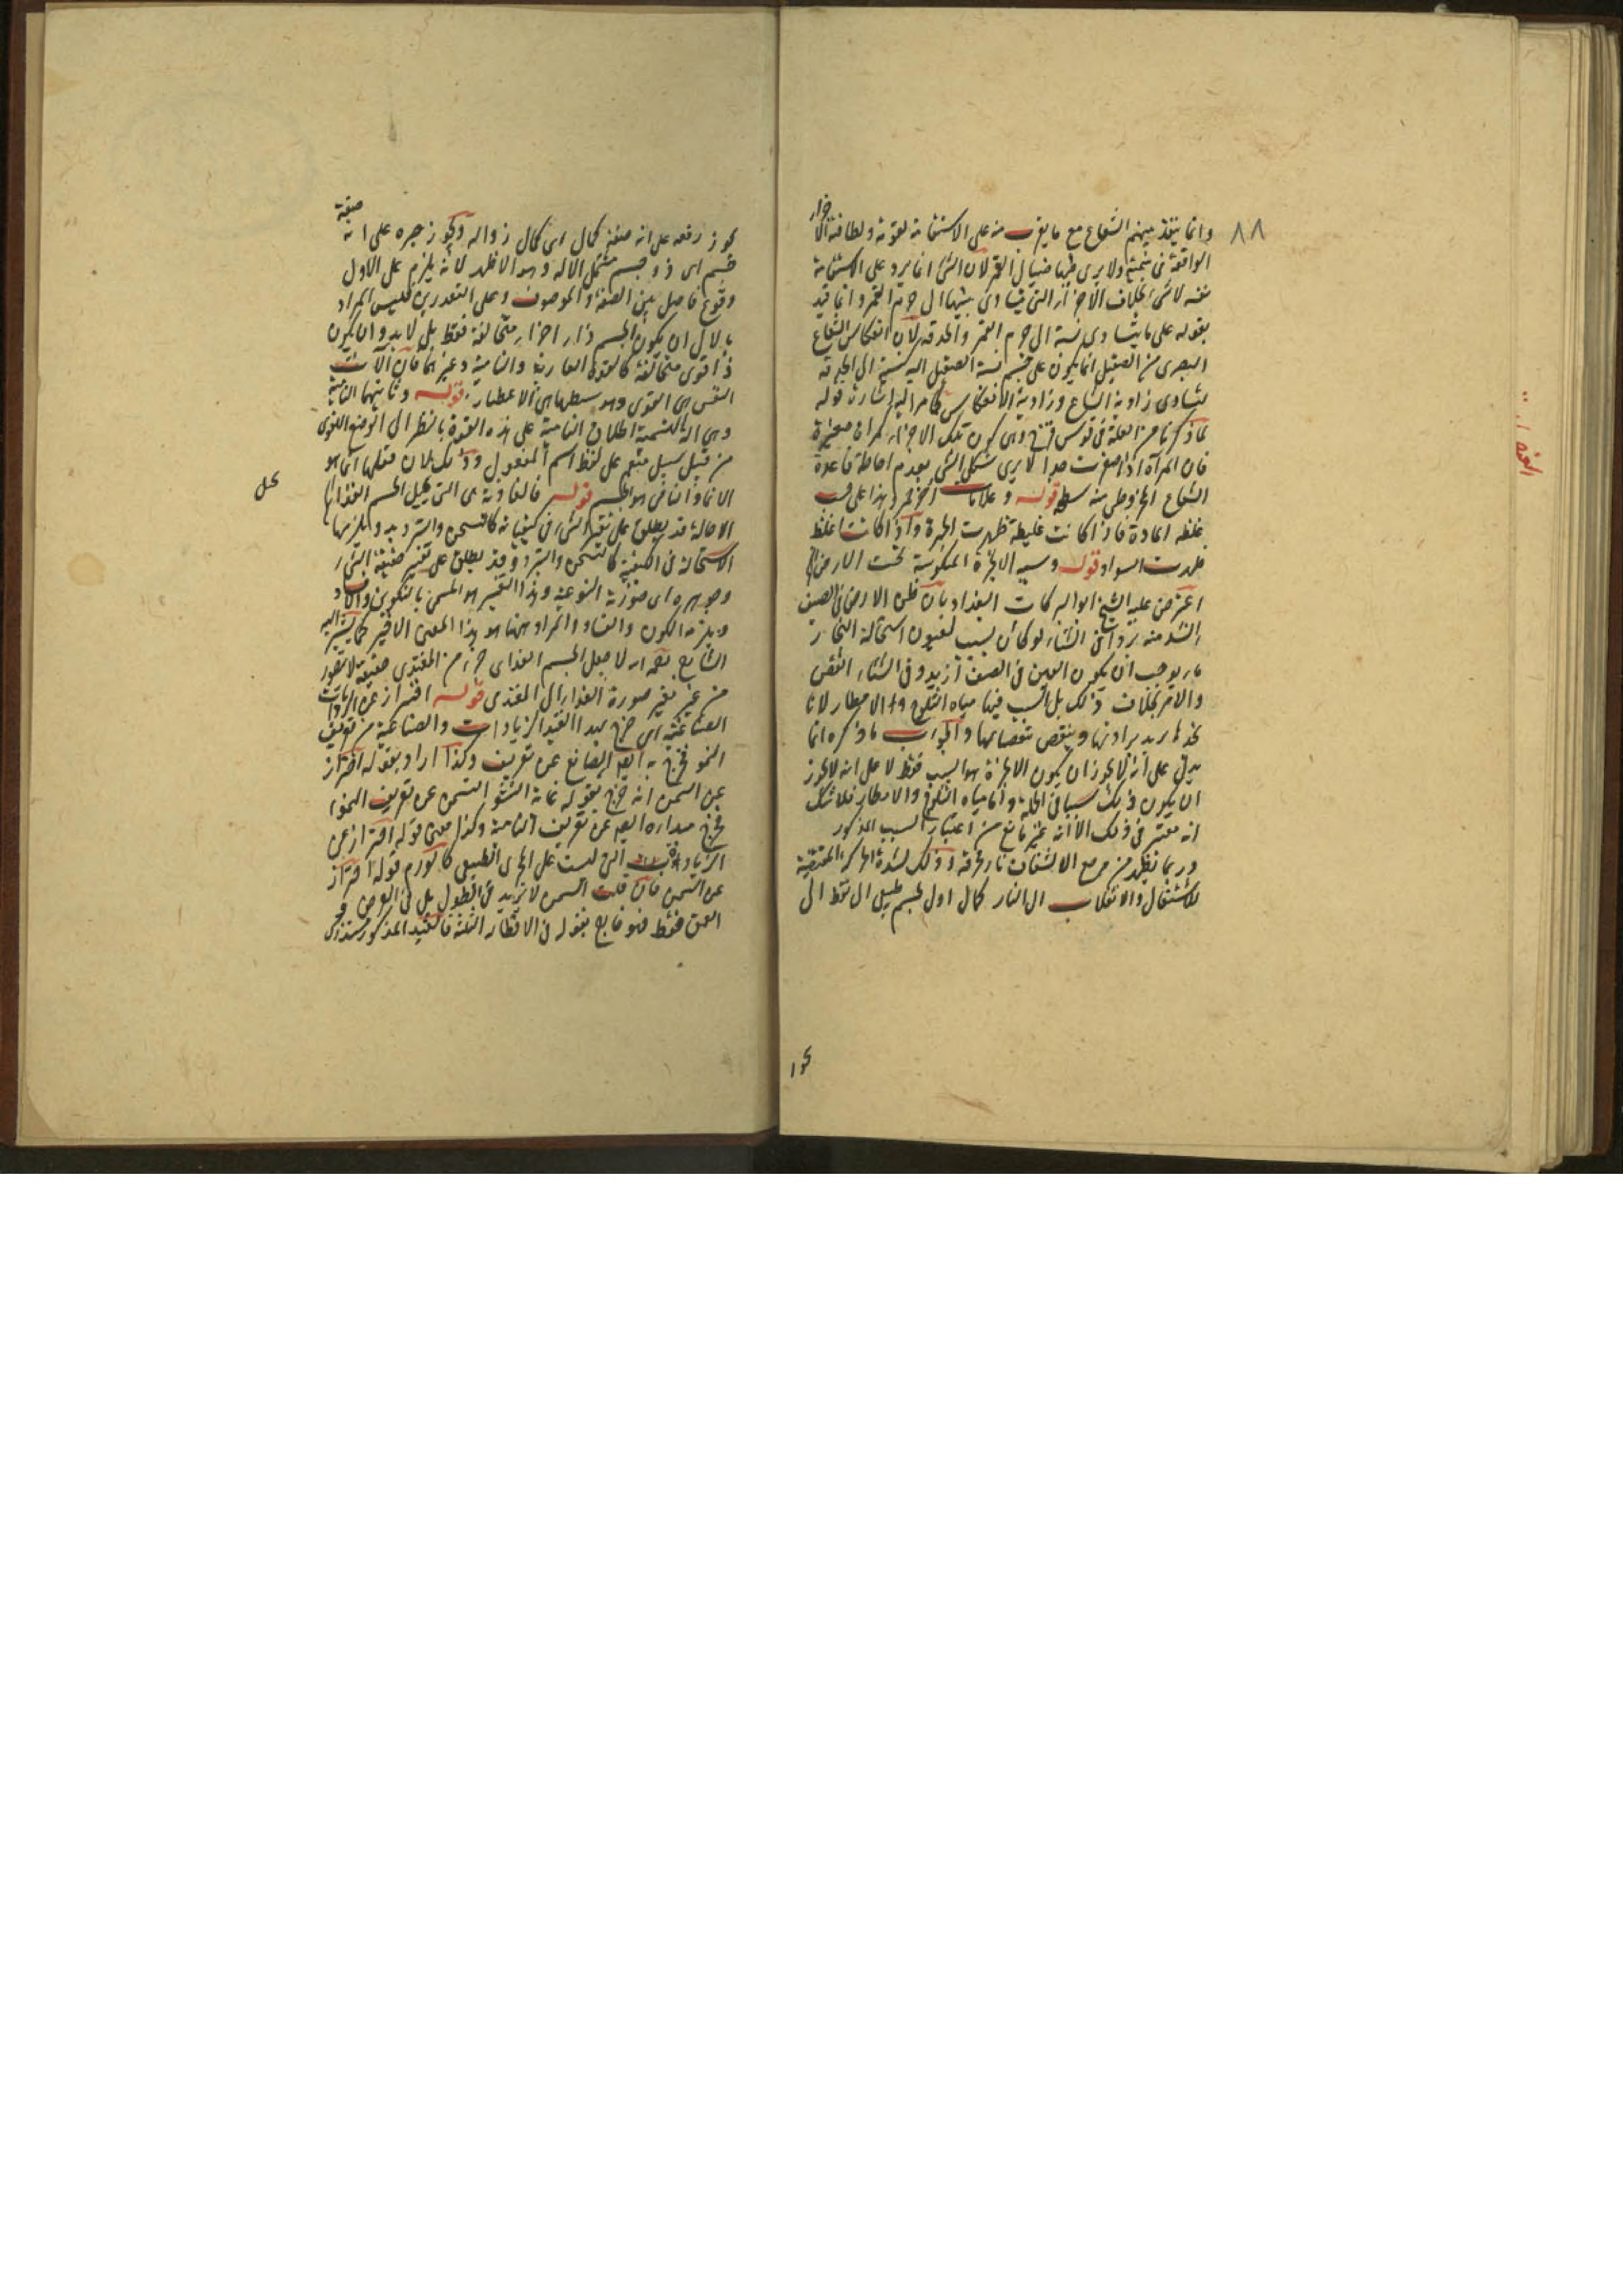 ٨٨
وانما ينفذ منهم الشعاع مع ما يقرب منه على الاستقامة لقوته ولطافة الاجزاء
الواقعة في ولا يرى فيها خيال القمر لان الشئ انما يرى على الاستقامة
نفسه لا شبحه بخلاف الاجزاء التي يتساوى نسبتها الى جرم القمر وانما قيد
بقوله على ما يتساوى نسبته الى جرم القمر والحدقة لان انعكاس الشعاع
البصري من الصقيل انما يكون على جسم نسبة الصقيل اليه كنسبته الى الحدقة
لتساوى زاوية الشعاع وزاوية الانعكاس كما مر اليه اشارة قوله
لما ذكرنا من العلة في قوس قزح وهي كون تلك الاجزاء مرايا صغيرة
فان المرآة اذا صغرت جدا لا يرى شكل الشئ لعدم احاطة قاعدة
الشعاع المخروطي منه سطحه قوله وعلامات حمر وهذا على حسب
غلظ المادة فاذا كانت غليظة ظهرت الحمرة واذا كانت اغلظ
ظهرت السواد قوله وسببه الابخرة المحتبسة تحت الارض
اعترض عليه الشيخ ابو البركات البغدادي بان باطن الارض في الصيف
اشد بردا منه في الشتاء فلو كان سبب العيون استحالة البخار
ماء يوجب ان يكون العيون في الصيف ازيد وفي الشتاء انقص
والامر بخلاف ذلك بل السبب فيها مياه الثلوج والامطار لانا
نجدها يزيد بزيادتها وينقص بنقصانها والجواب ما ذكره انما
يدل على انه لا يجوز ان يكون الابخرة هو السبب فقط لا على انه لا يجوز
ان يكون ذلك سببا في الجملة واما مياه الثلوج والامطار فلا شك
انه معتبر في ذلك الا انه غير مانع من اعتبار السبب المذكور
وربما يظهر من موضع الانشقاق نار محرقة وذلك لشدة الحركة المقتضية
للاشتعال والانقلاب الى النار كمال اول لجسم طبيعي آلي فقط الى
يجوز
يجوز رفعه على انه صفة كمال اي كمال ذو آلة ويجوز جره على انه صفة
جسم اي ذو جسم مشتمل الآلة وهو الاظهر لانه يلزم على الاول
وقوع فاصل بين الصفة والموصوف وعلى التقديرين فليس المراد
بالآلي ان يكون الجسم ذا اجزاء متخالفة فقط بل لابد وان يكون
ذا قوى متخالفة كالقوة الغاذية والنامية وغيرهما فان آلات
النفس هي القوى وبتوسطها هي الاعضاء قوله وثانيتها النامية
وهي التسمية اطلاق النامية على هذه القوة بالنظر الى الوضع اللغوي
من قبيل سيل مفعم على لفظ اسم المفعول وذلك لان فعلها انما هو
الانماء والنامي هو الجسم قوله فالغاذية هي التي تحيل الجسم الغذائي
الاحالة قد يطلق على تغير الشئ في كيفياته كالتسخين والتبريد ويلزمها
الاستحالة في الكيفية كالتسخن والتبرد وقد يطلق على تغيير حقيقة الشئ
وجوهره اي صورته النوعية وهذا التغيير هو المسمى بالتكوين والافساد
ويلزمه الكون والفساد والمراد ههنا هو هذا المعنى الاخير كما يشير اليه
الشارح بقوله اذ لا جعل الجسم الغذائي جزء من المغتذي حقيقة لا يتصور
من غير تغير صورة الغذاء الى المغتذي قوله احتراز عن الزيادات
الصناعية اي خرج بهذا القيد الزيادات والصناعية من تعريف
النمو فخرج به القوة الصانع عن تعريف وكذا اراد بقوله احتراز
عن السمن انه خرج بقوله غاية النشو السمن عن تعريف النمو
فخرج مبداؤه ايضا عن تعريف النامية وكذا معنى قوله احتراز عن
الزيادات التي ليست على المجرى الطبيعي كالورم قوله احتراز
عن السمن فان قلت السمن لا يزيد في الطول بل في العرض
العمق فقط فهو خارج بقوله في الاقطار الثلثة فالقيد المذكور مستدرك